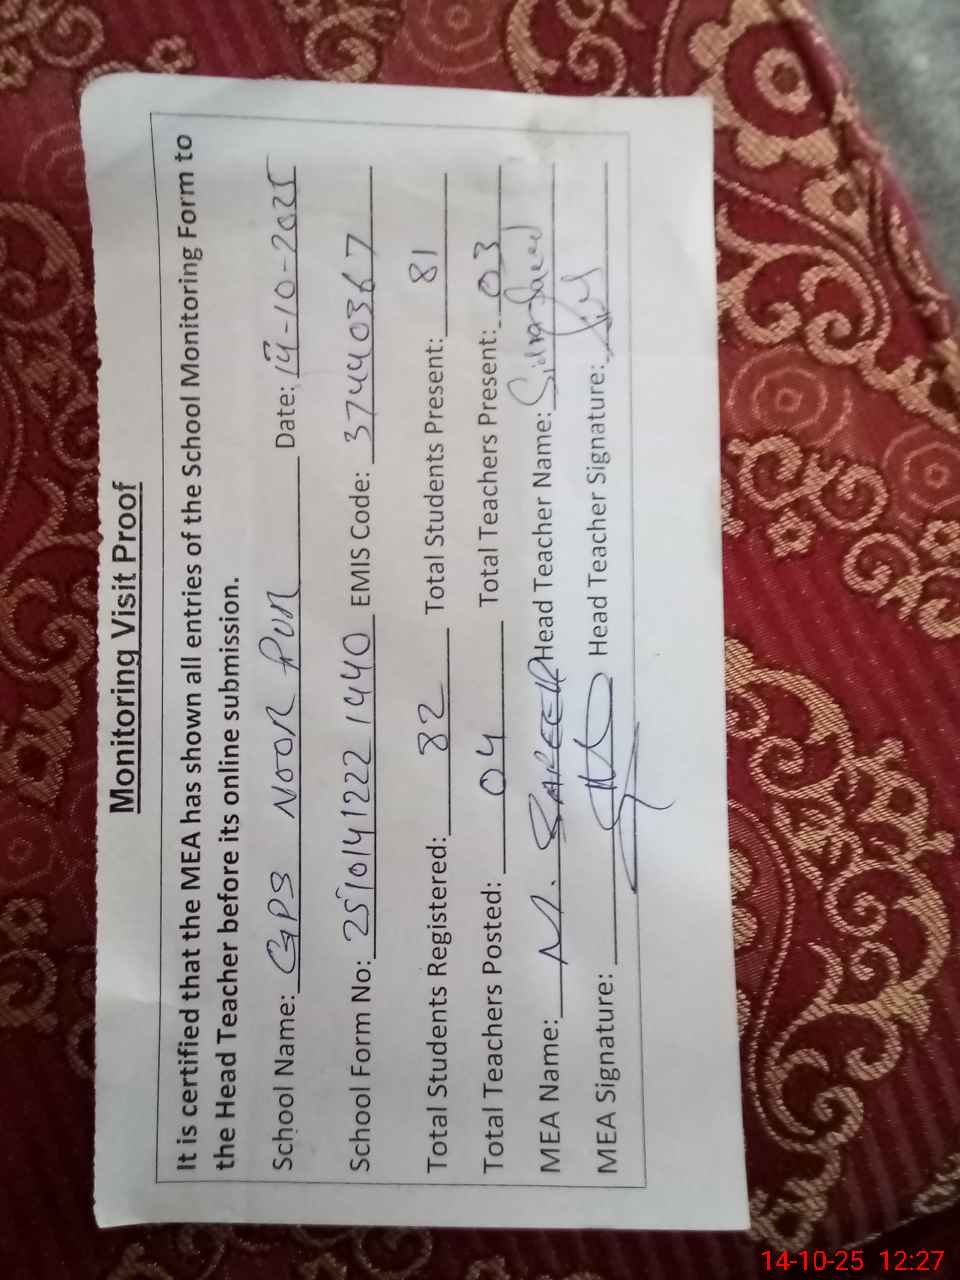 Monitoring Visit Proof
It is certified that the MEA has shown all entries of the School Monitoring Form to
the Head Teacher before its online submission.
School Name: GPS NOOR PUR Date: 14-10-2025
School Form No: 2510141222 1440 EMIS Code: 37440367
Total Students Registered: 82 Total Students Present: 81
Total Teachers Posted: 04 Total Teachers Present: 03
MEA Name: M. Head Teacher Name: Saeed
MEA Signature: Head Teacher Signature:
14-10-25 12:27